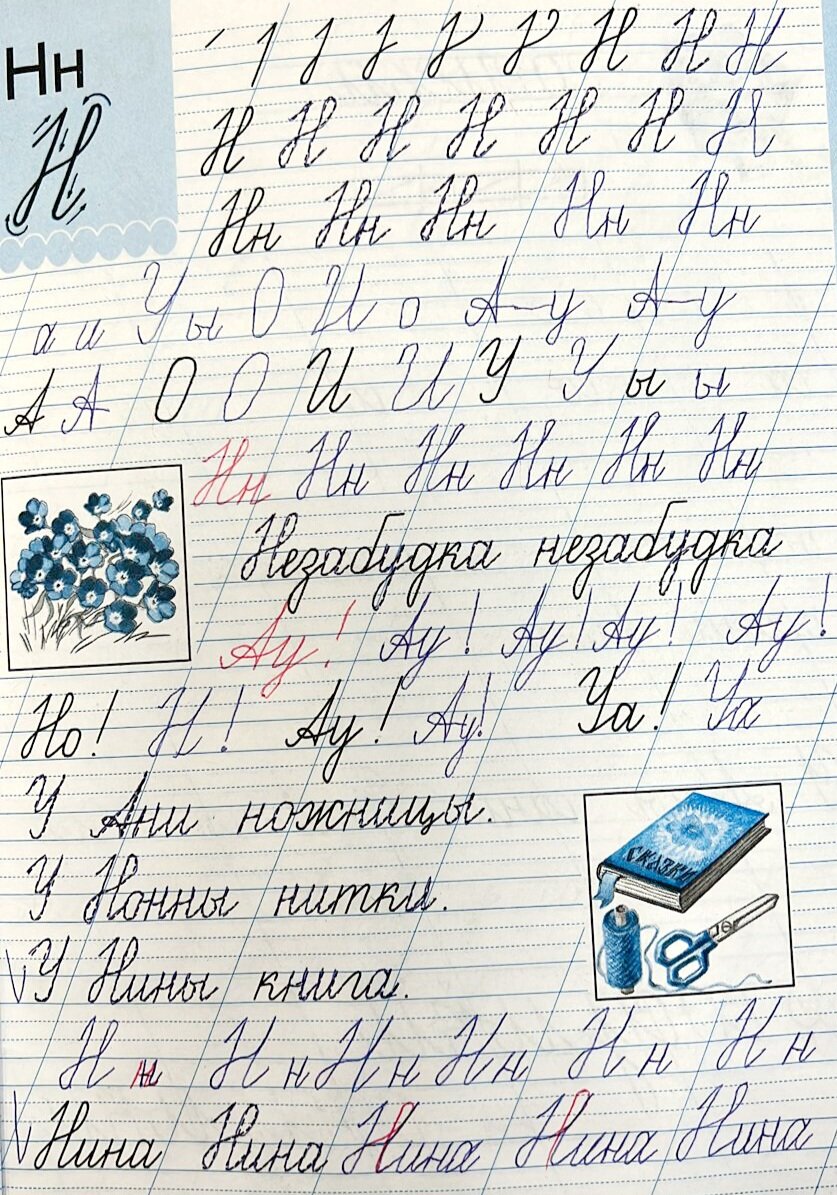 Нн
Н
Н Н Н
Н Н Н Н Н Н Н
Нн Нн Нн Нн Нн
а и У ы О И о А-у А-у
А А О О И И У У ы ы
Нн Нн Нн Нн Нн Нн
Незабудка незабудка
Ау! Ау! Ау! Ау! Ау!
Но! Н! Ау! Ау! Уа! Уа
У Ани ножницы.
У Нонны нитки.
СКАЗКИ
У Нины книга.
Н н Н н Н н Н н Н н Н н
Нина Нина Нина Нина Нина